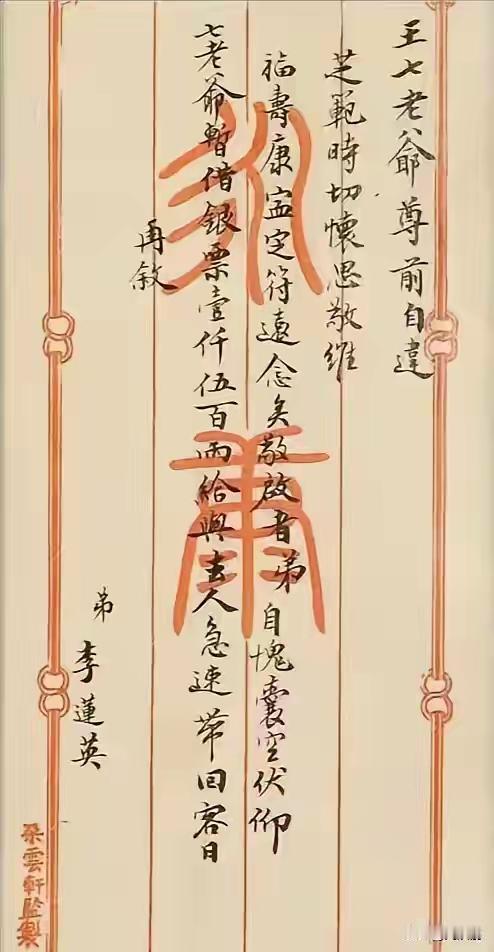 王七老爺尊前自違
芝範時切懷思敬維
福壽康寍定符遠念矣敬啟者弟自愧囊空伏仰
七老爺暫借銀票壹仟伍百兩給與去人急速帶回容日
再敘
弟李蓮英
朵雲軒監製